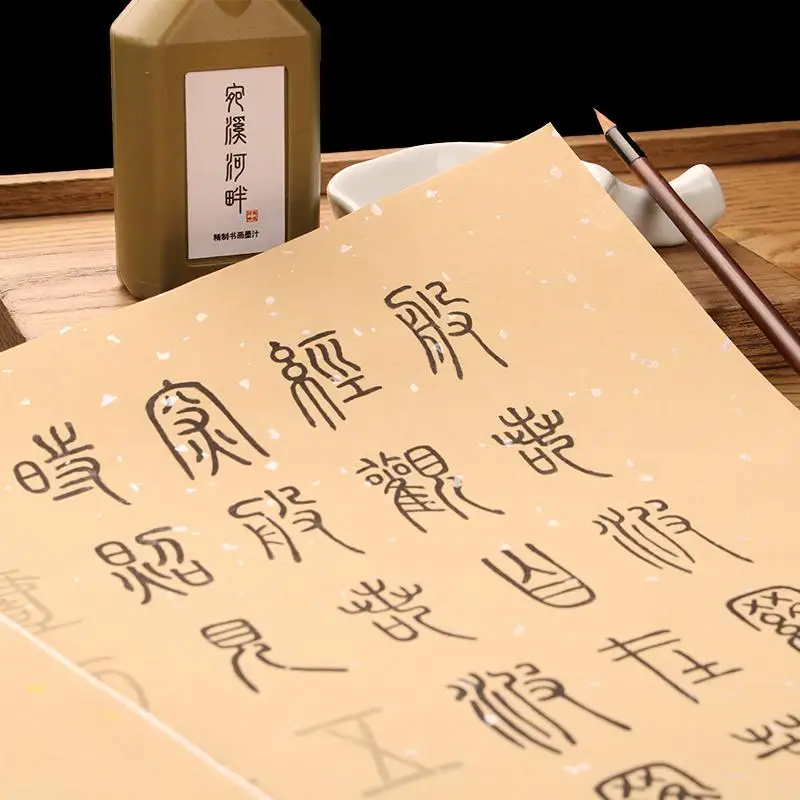 宛溪河畔
精制书画墨汁
般若波羅
經觀自在菩
深般若波羅
時照見五